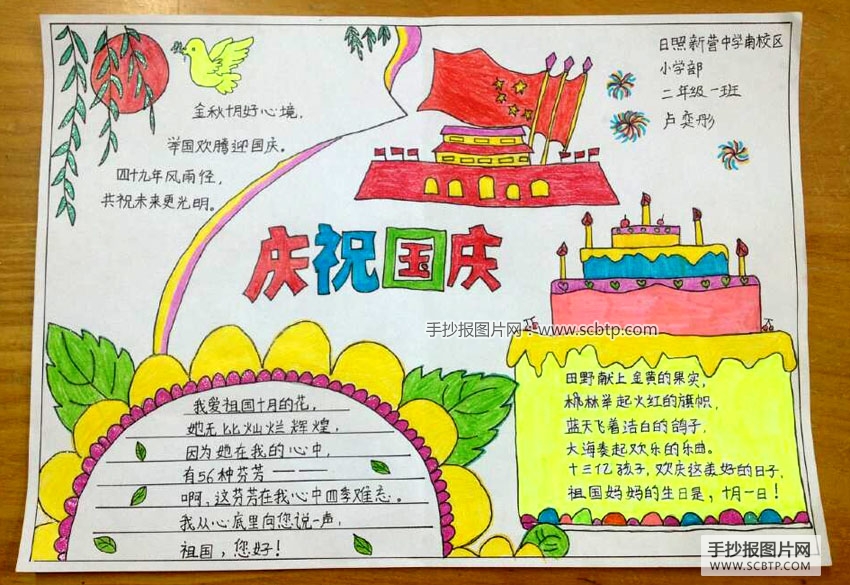 日照新营中学南校区
小学部
二年级一班
卢奕彤
金秋十月好心境,
举国欢腾迎国庆。
四十九年风雨径,
共祝未来更光明。
庆祝国庆
手抄报图片网:www.scbtp.com
我爱祖国十月的花,
她无比灿烂辉煌,
因为她在我的心中,
有56种芬芳——
啊,这芬芳在我心中四季难忘。
我从心底里向您说一声,
祖国,您好!
田野献上金黄的果实,
林举起火红的旗帜,
蓝天飞着洁白的鸽子,
大海奏起欢乐的乐曲。
十三亿孩子,欢庆这美好的日子,
祖国妈妈的生日是,十月一日!
手抄报图片网
WWW.SCBTP.COM